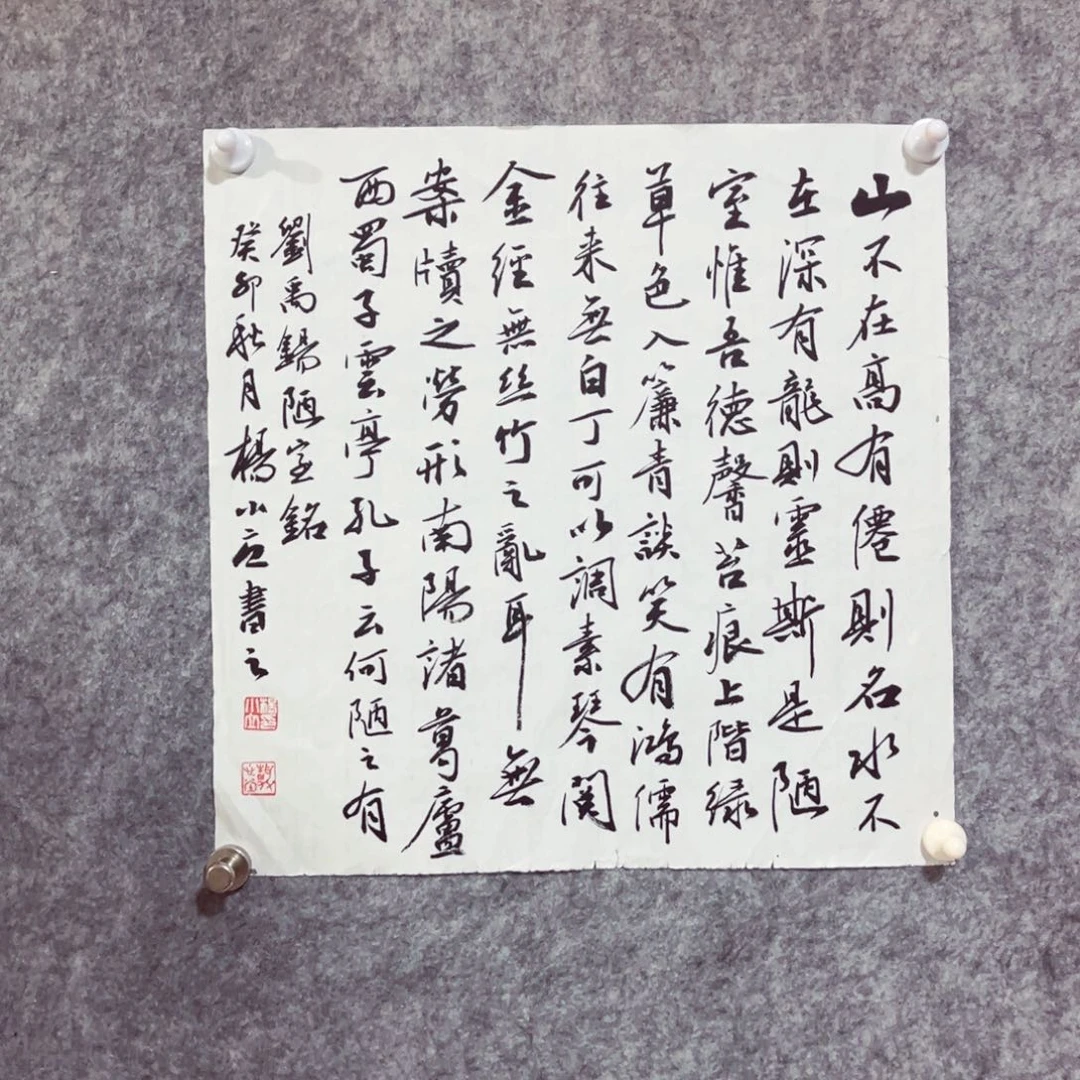 山不在髙有僊則名水不
在深有龍則靈斯是陋
室惟吾德馨苔痕上階緑
草色入簾青談笑有鴻儒
往来無白丁可以調素琴閲
金經無丝竹之亂耳無
案牘之勞形南陽諸葛廬
西蜀子雲亭孔子云何陋之有
劉禹錫陋室銘
癸卯秋月楊小書之